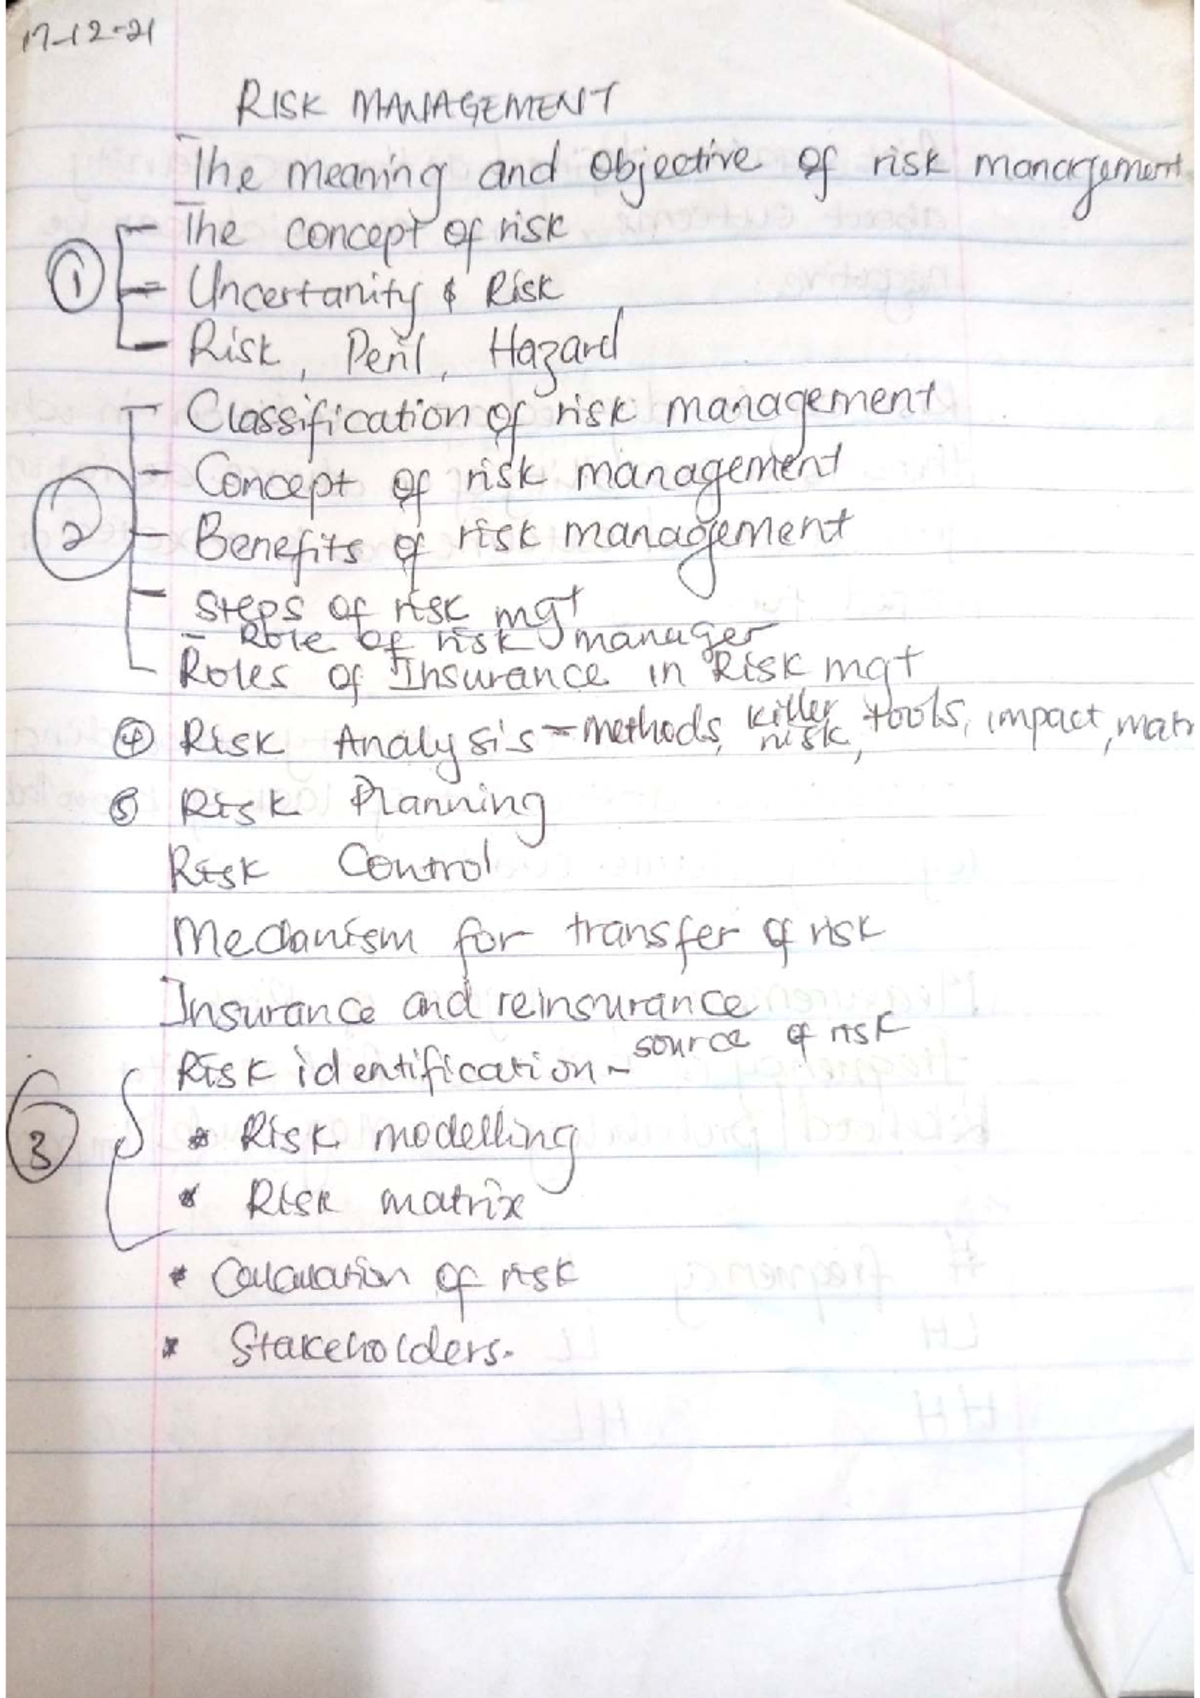 17-12-21
RISK MANAGEMENT
The meaning and objective of risk management
The concept of risk
① Uncertanity & Risk
Risk, Peril, Hazard
Classification of risk management
- Concept of risk management
② - Benefits of risk management
- Steps of risk mgt
- Role of risk manager
Roles of Insurance in Risk mgt
④ Risk Analysis - methods, killer risk, tools, impact, matr
⑤ Risk Planning
Risk Control
Mechanism for transfer of risk
Insurance and reinsurance
Risk identification - source of risk
③ * Risk modelling
* Risk matrix
* Calculation of risk
* Stakeholders.